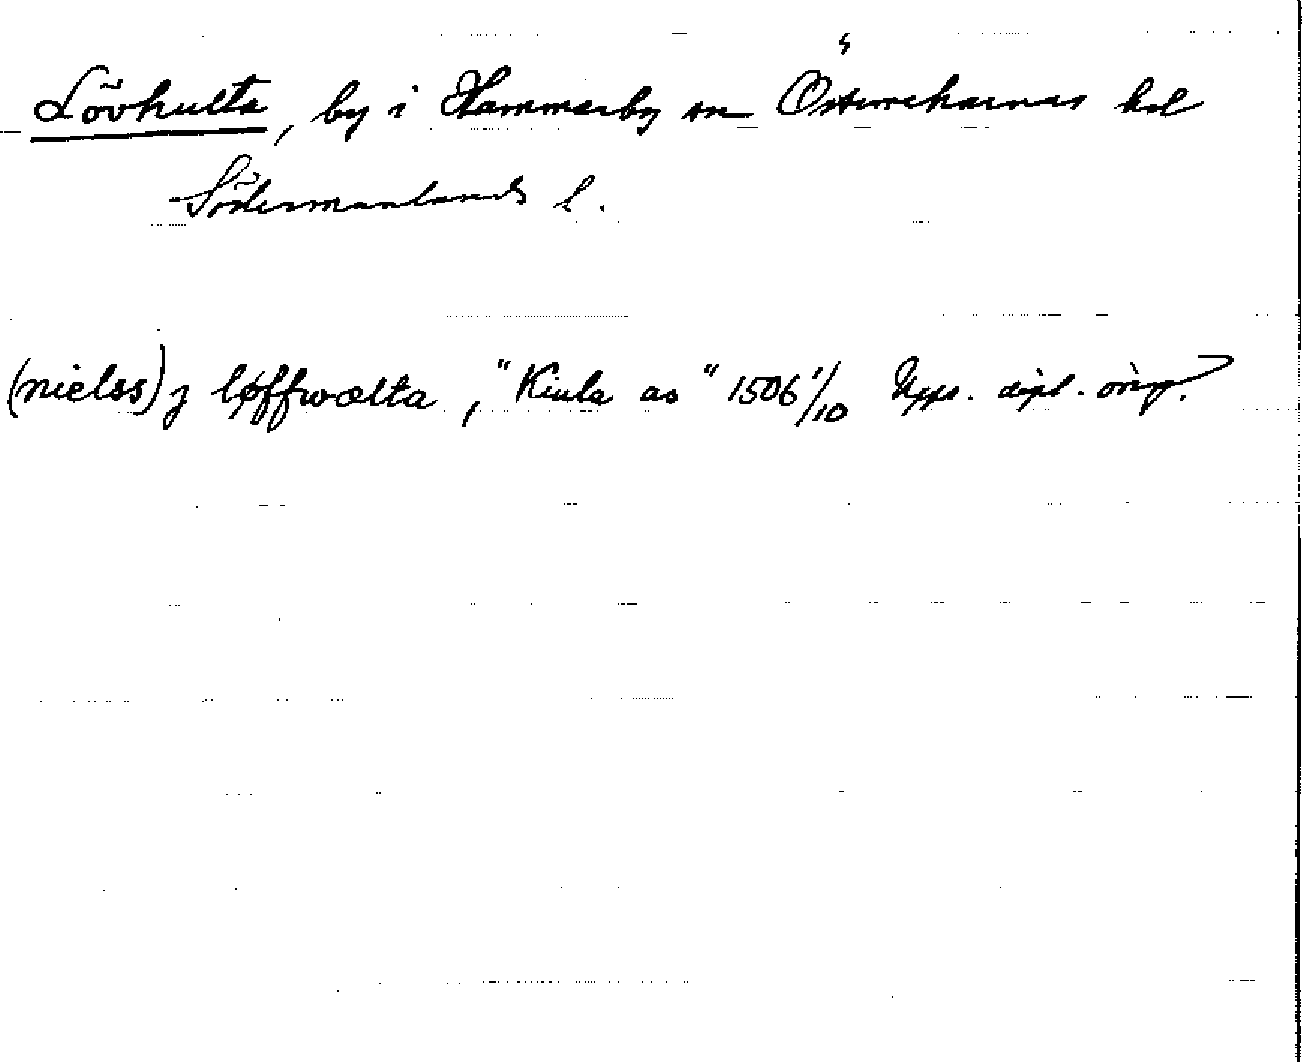 Lövhulta, by i Hammarby sn Österrekarnes hd
Södermanlands l.
(nielss) j løffwælta, "Kiula as" 1506 1/10 Upps. dipl. orig.